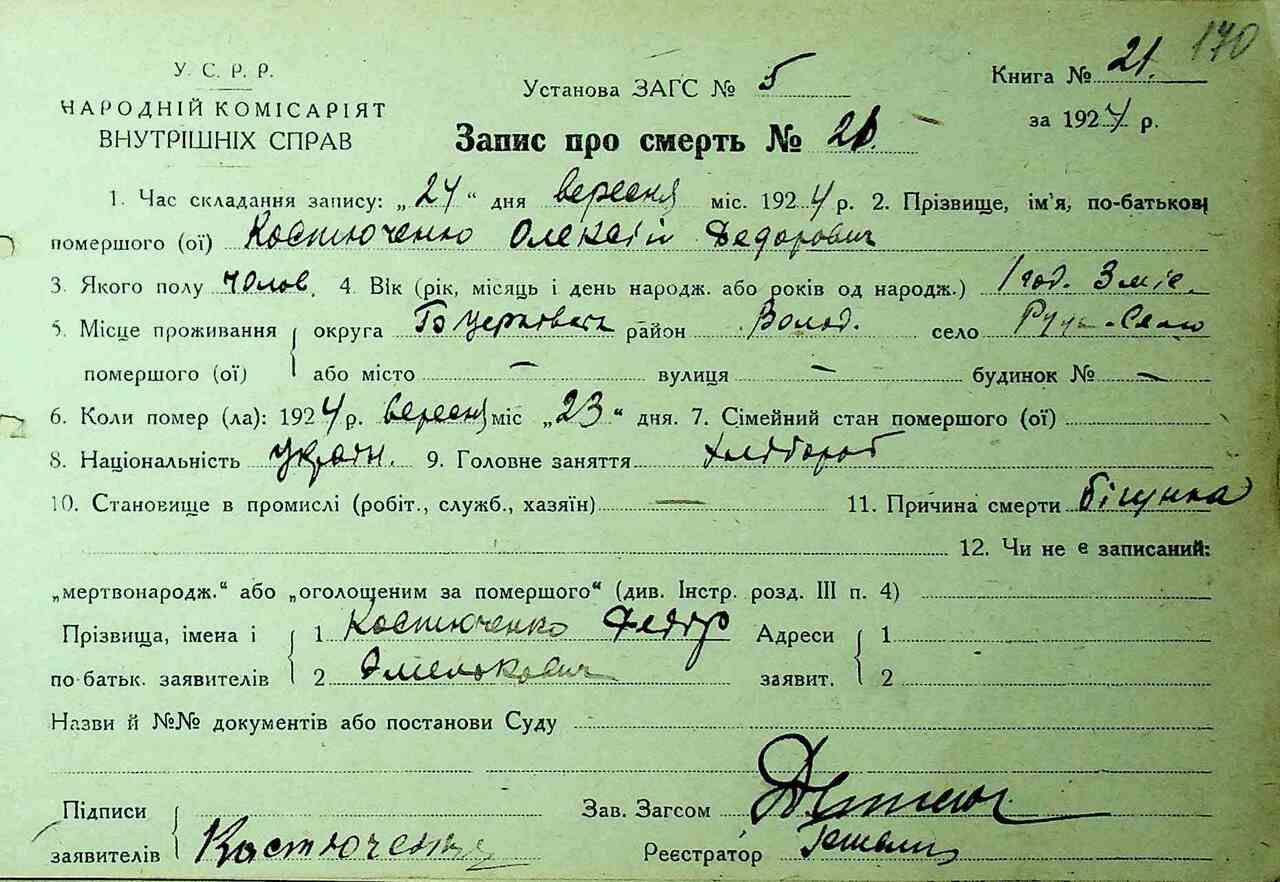 170
У. С. Р. Р.
НАРОДНІЙ КОМІСАРІЯТ
ВНУТРІШНІХ СПРАВ
Установа ЗАГС № 5
Книга № 21.
за 1924 р.
Запис про смерть № 21.
1. Час складання запису: „24“ дня вересня міс. 1924 р. 2. Прізвище, ім'я, по-батькові
помершого (ої) Костюченко Олексій Федорович
3. Якого полу чолов. 4. Вік (рік, місяць і день народж. або років од народж.) 1 год. 3 міс.
5. Місце проживання округа Б Церковська район Волод. село Руда-Село
помершого (ої) або місто — вулиця — будинок № —
6. Коли помер (ла): 1924 р. вересня міс „23“ дня. 7. Сімейний стан помершого (ої)
8. Національність Україн. 9. Головне заняття хлібороб
10. Становище в промислі (робіт., служб., хазяїн) — 11. Причина смерти бігунка
12. Чи не є записаний:
„мертвонародж.“ або „оголошеним за помершого“ (див. Інстр. розд. III п. 4)
Прізвища, імена і 1 Костюченко Федір Адреси 1
по-батьк. заявителів 2 заявит. 2
Назви й №№ документів або постанови Суду
Підписи Зав. Загсом
заявителів Костюченко Реєстратор